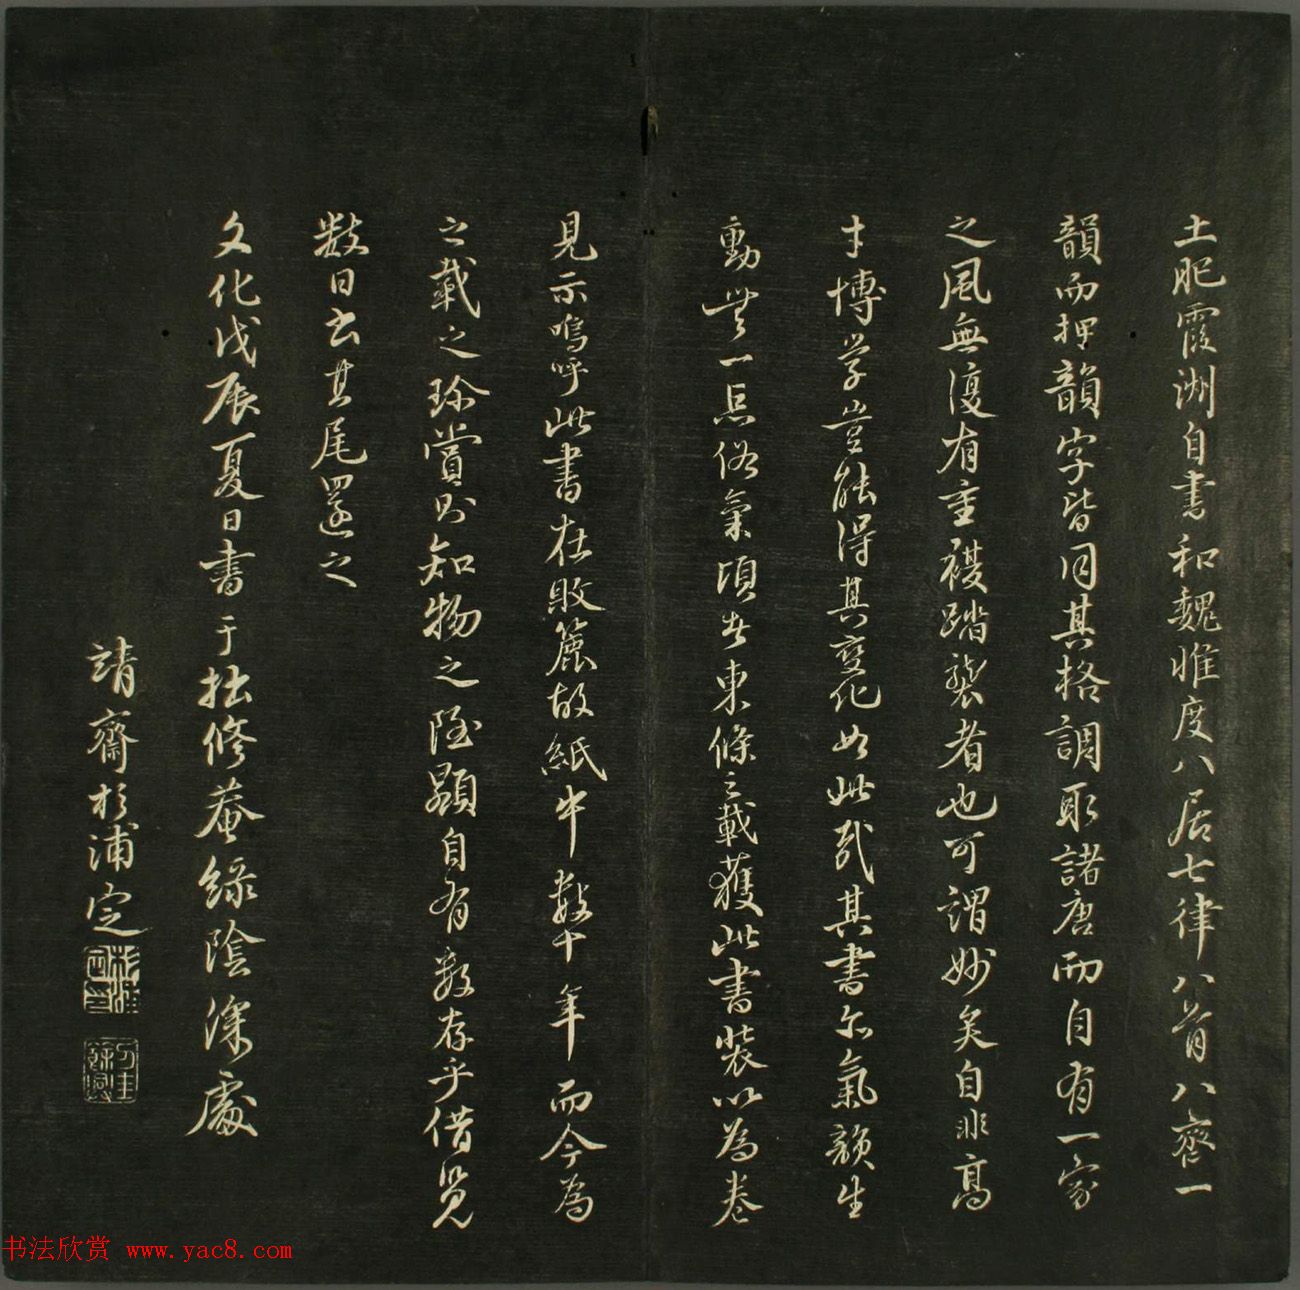 土肥霞洲自書和魏惟度八居七律八首八齊一
韻而押韻字皆同其格調取諸唐而自有一家
之風無復有重複蹈襲者也可謂妙矣自非高
才博学豈能得其變化如此哉其書尓氣韻生
動無一点俗氣頃者東條之載獲此書装以為巻
見示嗚呼此書在敗簏故紙中数十年而今為
之載之珎賞則知物之隠顕自有数存乎借覽
数日書其尾還之
文化戊辰夏日書于拙修菴緑陰深處
靖齋杉浦定
书法欣赏 www.yac8.com